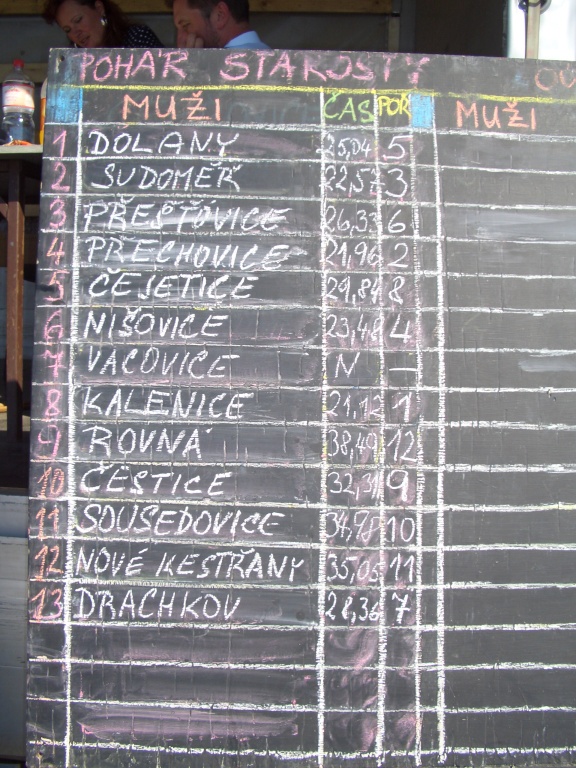 POHÁR STAROSTY
MUŽI ČAS POŘ MUŽI
1 DOLANY 25,04 5
2 SUDOMĚŘ 22,57 3
3 PŘEŠŤOVICE 26,33 6
4 PŘECHOVICE 21,96 2
5 ČEJETICE 29,84 8
6 NIŠOVICE 23,48 4
7 VACOVICE N –
8 KALENICE 21,12 1
9 ROVNÁ 38,49 12
10 ČESTICE 32,31 9
11 SOUSEDOVICE 34,98 10
12 NOVÉ KESTŘANY 35,05 11
13 DRACHKOV 28,36 7